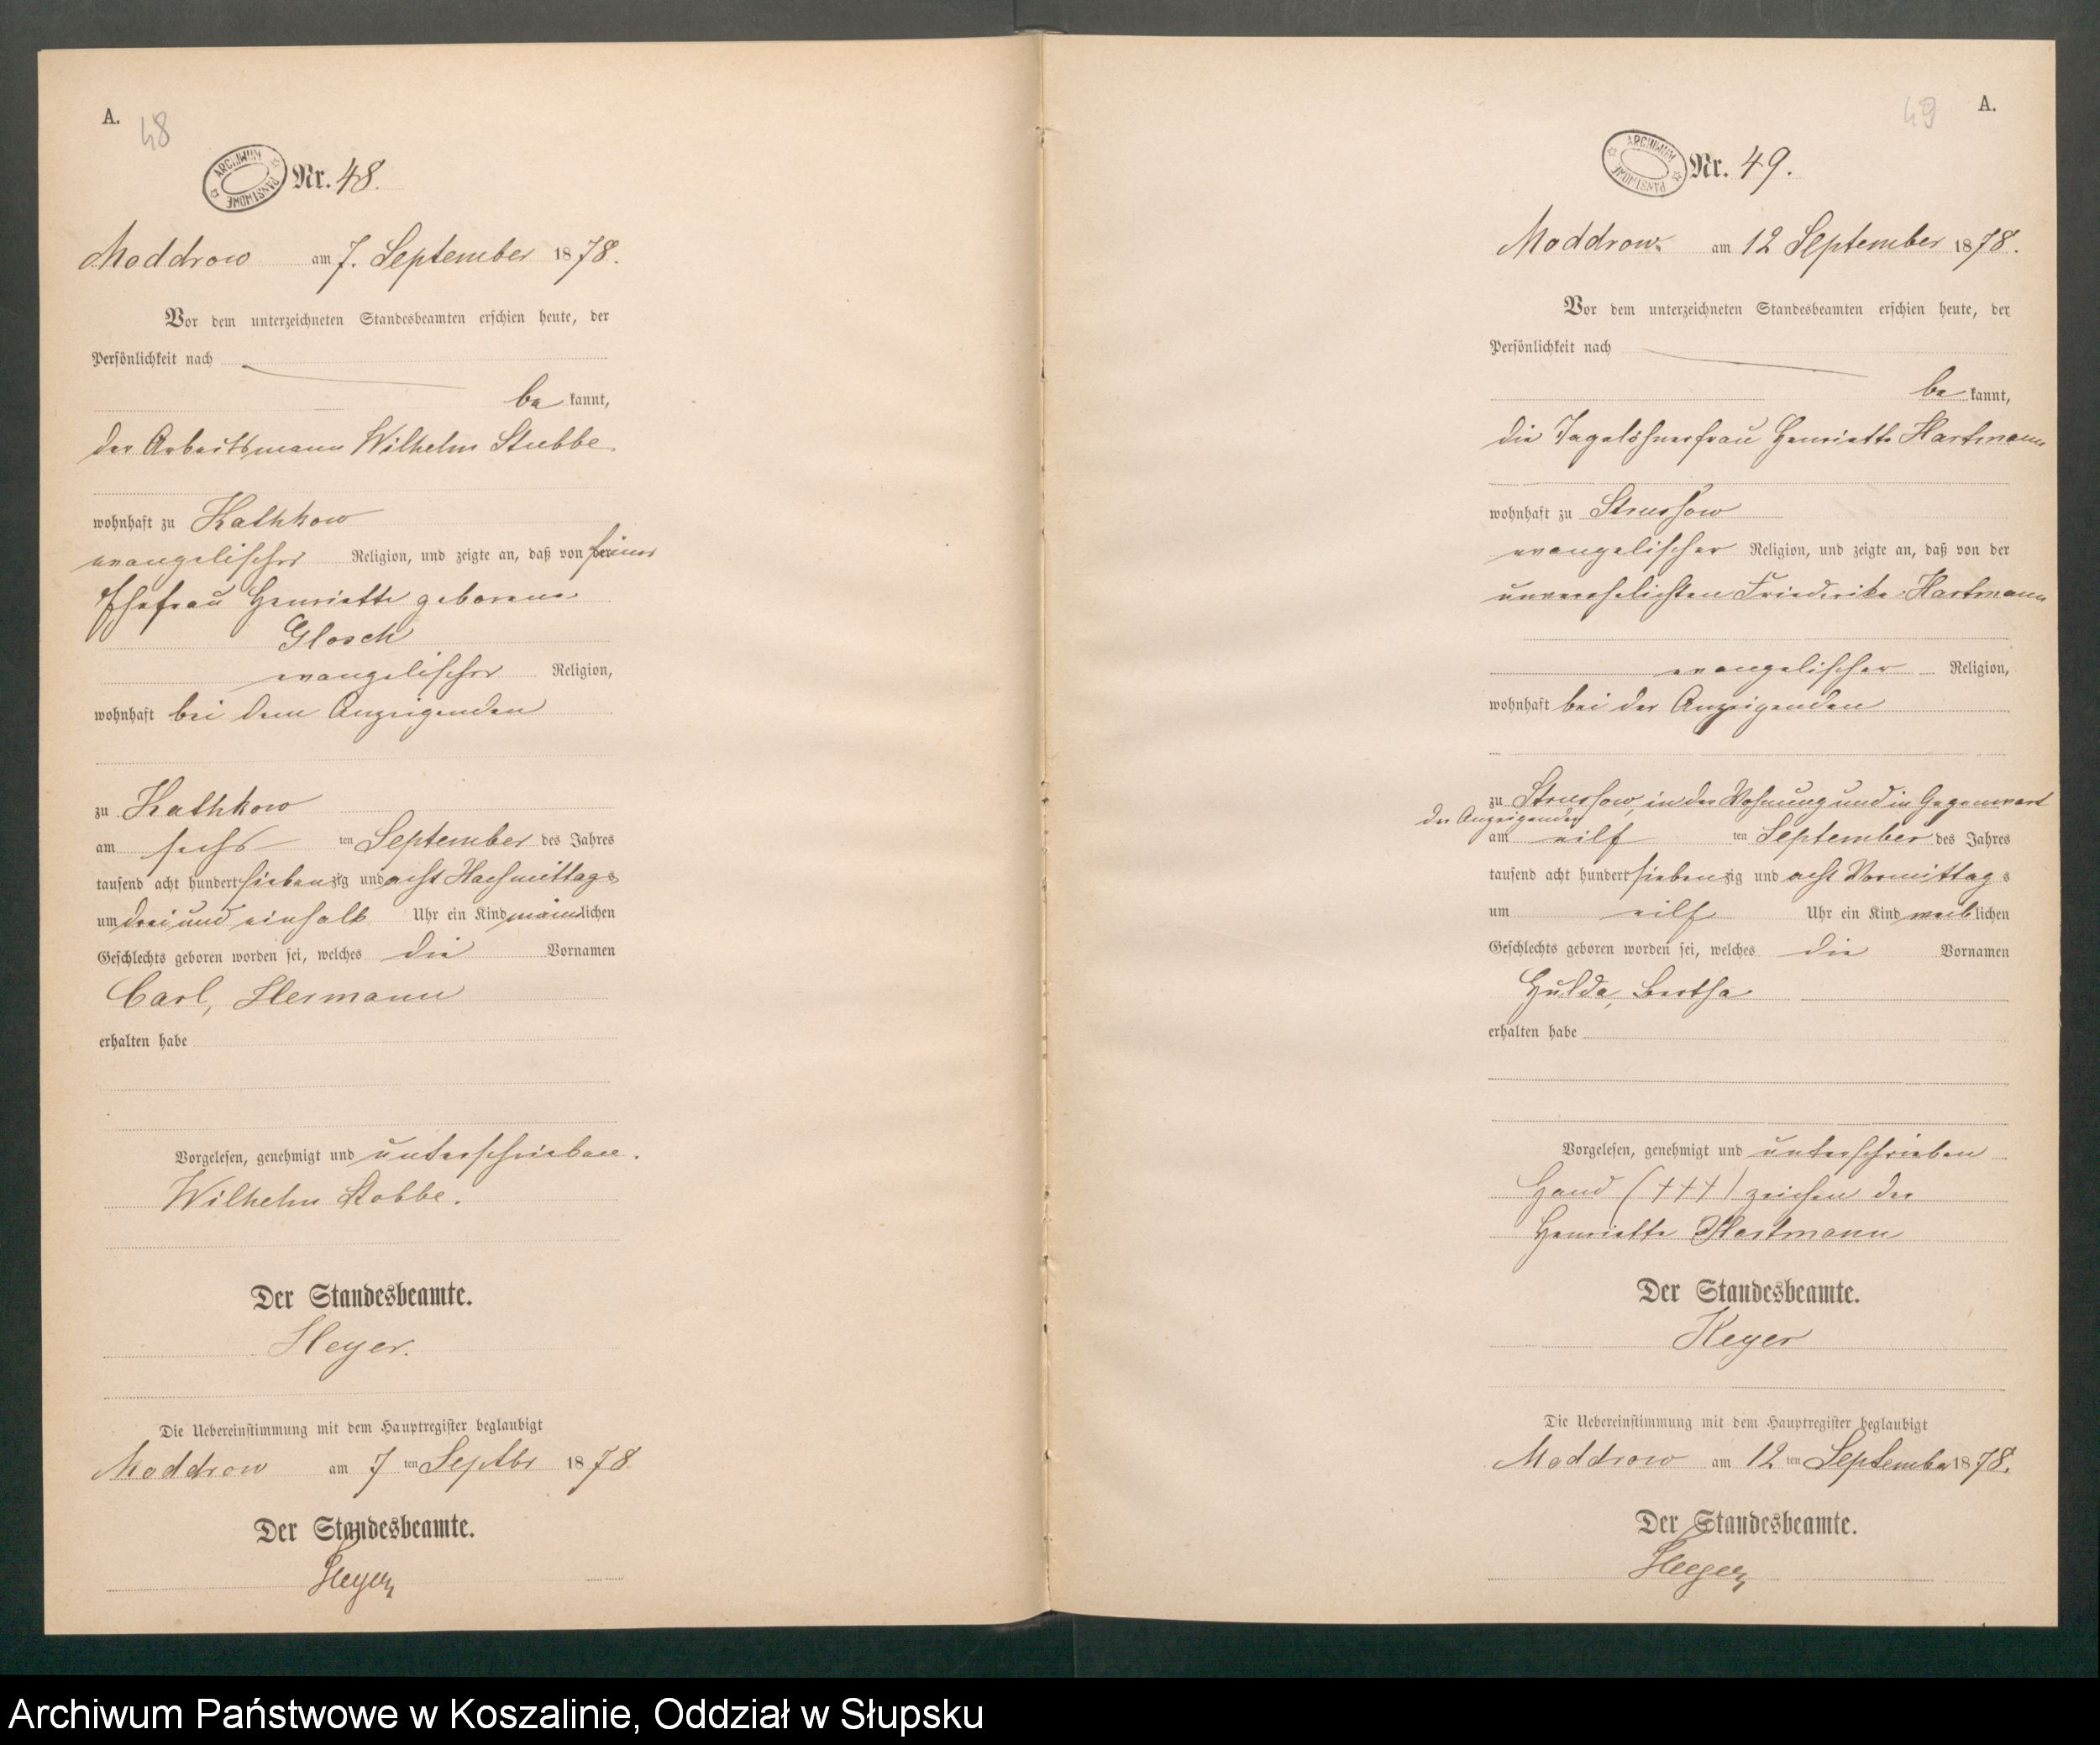 A.
48
ARCHIWUM PAŃSTWOWE
Nr. 48.
Moddrow am 7. September 1878.
Vor dem unterzeichneten Standesbeamten erschien heute, der
Persönlichkeit nach
be kannt,
der Arbeitsmann Wilhelm Stubbe
wohnhaft zu Kathkow
evangelischer Religion, und zeigte an, daß von seiner
Ehefrau Henriette geborene
Glosch
evangelischer Religion,
wohnhaft bei dem Anzeigenden
zu Kathkow
am sechs ten September des Jahres
tausend acht hundert siebenzig und acht Nachmittags
um drei und einhalb Uhr ein Kind männlichen
Geschlechts geboren worden sei, welches die Vornamen
Carl, Hermann
erhalten habe
Vorgelesen, genehmigt und unterschrieben.
Wilhelm Stobbe.
Der Standesbeamte.
Heyer.
Die Uebereinstimmung mit dem Hauptregister beglaubigt
Moddrow am 7 ten Septbr 1878
Der Standesbeamte.
Heyer
49
A.
ARCHIWUM PAŃSTWOWE
Nr. 49.
Moddrow am 12 September 1878.
Vor dem unterzeichneten Standesbeamten erschien heute, der
Persönlichkeit nach
be kannt,
die Tagelöhnerfrau Henriette Hartmann
wohnhaft zu Strussow
evangelischer Religion, und zeigte an, daß von der
unverehelichten Friederike Hartmann
evangelischer Religion,
wohnhaft bei der Anzeigenden
zu Strussow, in der Wohnung und in Gegenwart
der Anzeigenden
am eilf ten September des Jahres
tausend acht hundert siebenzig und acht Vormittags
um eilf Uhr ein Kind weiblichen
Geschlechts geboren worden sei, welches die Vornamen
Hulda, Bertha
erhalten habe
Vorgelesen, genehmigt und unterschrieben
Hand (+++) zeichen der
Henriette Hartmann
Der Standesbeamte.
Heyer
Die Uebereinstimmung mit dem Hauptregister beglaubigt
Moddrow am 12 ten September 1878.
Der Standesbeamte.
Heyer
Archiwum Państwowe w Koszalinie, Oddział w Słupsku